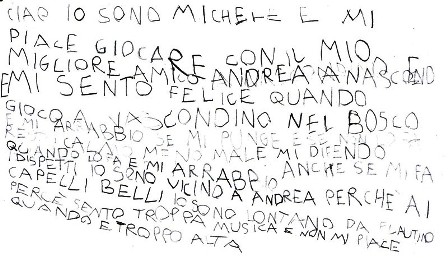 CIAO IO SONO MICHELE E MI
PIACE GIOCARE CON IL MIO
MIGLIORE AMICO ANDREA A NASCOND
E MI SENTO FELICE QUANDO
GIOCO A NASCONDINO NEL BOSCO
E MI ARRABBIO SE MI PUNGE
QUANDO MENO MALE MI DIFENDO
I DISPETTI E MI ARRABBIO ANCHE SE MI FA
IO SONO VICINO A ANDREA PERCHE AI
CAPELLI BELLI IO SONO LONTANO DA FLAUTINO
PERCHE SENTO TROPPA MUSICA E NON MI PIACE
QUANDO E TROPPO ALTA